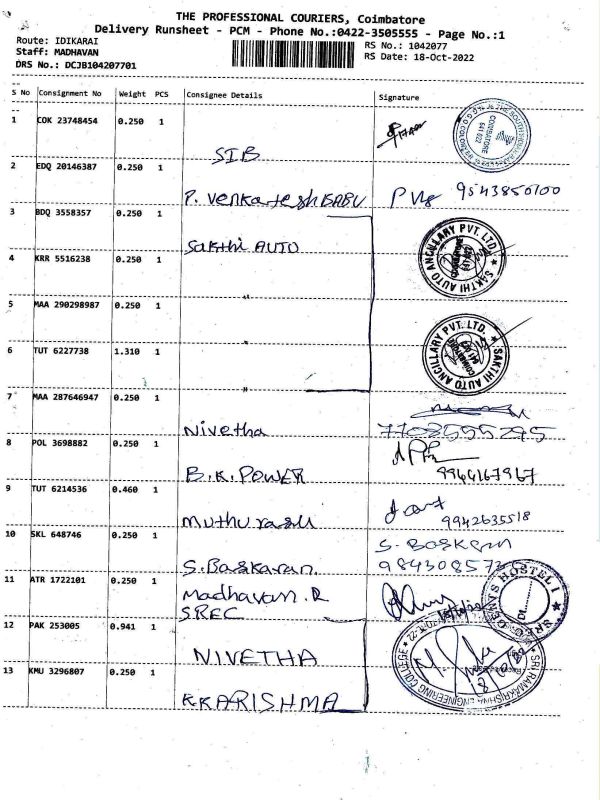 THE PROFESSIONAL COURIERS, Coimbatore
Delivery Runsheet - PCM - Phone No.:0422-3505555 - Page No.:1
Route: IDIKARAI
RS No.: 1042077
Staff: MADHAVAN
RS Date: 18-Oct-2022
DRS No.: DCJB104207701
S No Consignment No Weight PCS Consignee Details Signature
1 COK 23748454 0.250 1
SIB
2 EDQ 20146387 0.250 1
P. Venkatesh BABU 9543850100
3 BDQ 3558357 0.250 1
Sakthi AUTO
SAKTHI AUTO ANCILLARY PVT. LTD.
4 KRR 5516238 0.250 1
5 MAA 290298987 0.250 1
SAKTHI AUTO ANCILLARY PVT. LTD.
6 TUT 6227738 1.310 1
7 MAA 287646947 0.250 1
Nivetha 7708555295
8 POL 3698882 0.250 1
B.K. POWER 9944167967
9 TUT 6214536 0.460 1
Muthu rasu 9942635518
10 SKL 648746 0.250 1
S. Baskaran
S. Baskaran.
11 ATR 1722101 0.250 1
Madhavan. R
SREC
12 PAK 253005 0.941 1
NIVETHA
SRI RAMAKRISHNA ENGINEERING COLLEGE
13 KMU 3296807 0.250 1
KKARISHMA